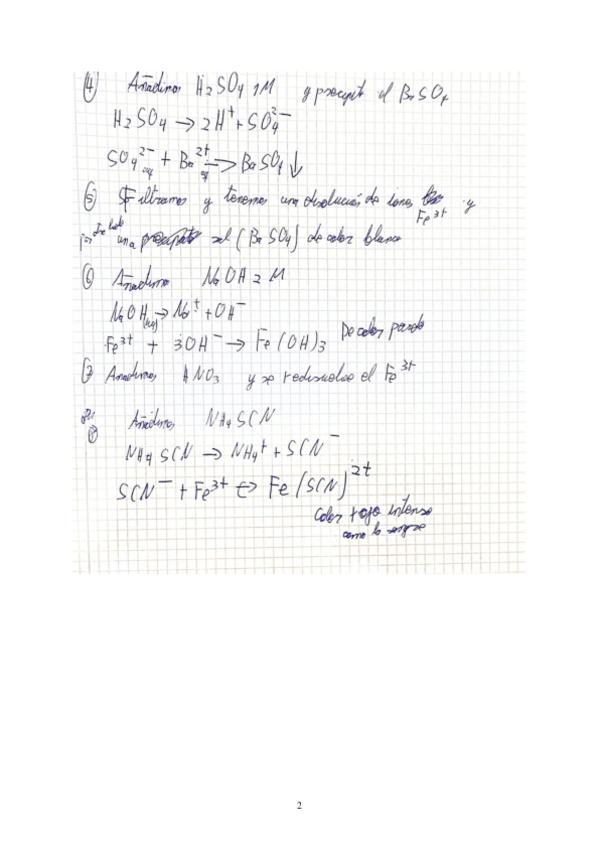 ④ Añadimos H2SO4 1M y precipita el BaSO4
H2SO4 → 2H⁺ + SO4²⁻
SO4²⁻ aq + Ba²⁺ aq → BaSO4 ↓
⑤ Filtramos y tenemos una disolución de iones Fe³⁺ y
por otro lado una sal (BaSO4) de color blanco
⑥ Añadimos NaOH 2M
NaOH (aq) → Na⁺ + OH⁻
Fe³⁺ + 3OH⁻ → Fe(OH)3 De color pardo
⑦ Añadimos HNO3 y se redisuelve el Fe³⁺
⑧ Añadimos NH4SCN
NH4SCN → NH4⁺ + SCN⁻
SCN⁻ + Fe³⁺ ↔ Fe(SCN)²⁺
Color rojo intenso
como la sangre
2